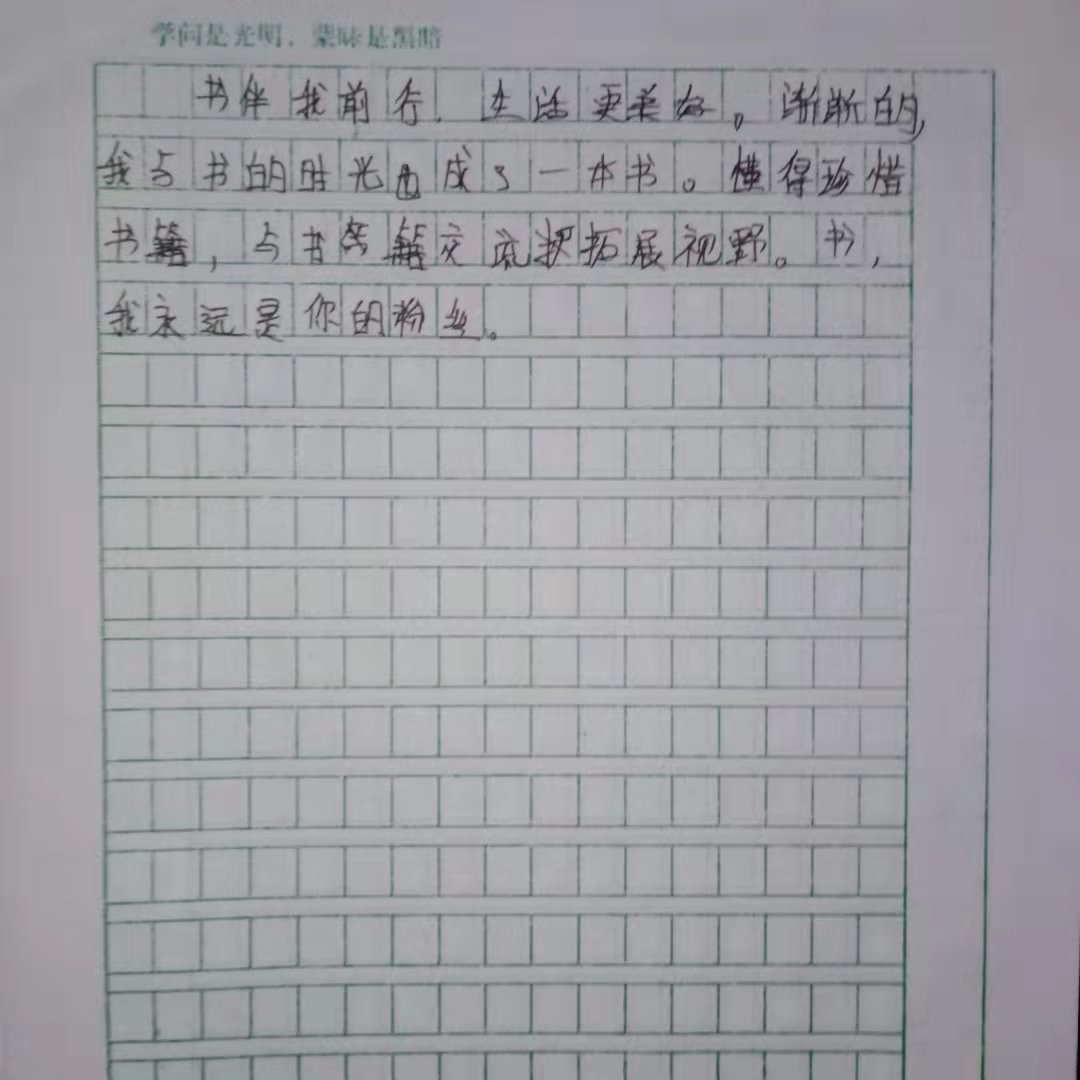 学问是光明，蒙昧是黑暗
书伴我前行，生活更美好。渐渐的，
我与书的时光也成了一本书。懂得珍惜
书籍，与书籍交流拓展视野。书，
我永远是你的粉丝。